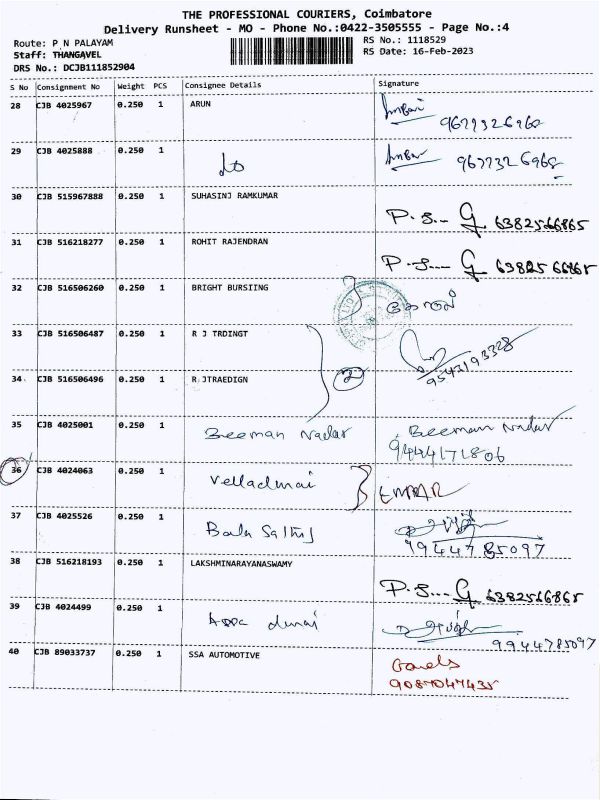 THE PROFESSIONAL COURIERS, Coimbatore
Delivery Runsheet - MO - Phone No.:0422-3505555 - Page No.:4
Route: P N PALAYAM
RS No.: 1118529
Staff: THANGAVEL
RS Date: 16-Feb-2023
DRS No.: DCJB111852904
S No Consignment No Weight PCS Consignee Details Signature
28 CJB 4025967 0.250 1 ARUN
29 CJB 4025888 0.250 1 do
30 CJB 515967888 0.250 1 SUHASINJ RAMKUMAR P.S. G. 6382566865
31 CJB 516218277 0.250 1 ROHIT RAJENDRAN P.S. G. 6382566865
32 CJB 516506260 0.250 1 BRIGHT BURSIING
33 CJB 516506487 0.250 1 R J TRDINGT
34 CJB 516506496 0.250 1 R JTRAEDIGN 2
35 CJB 4025001 0.250 1 Beeman Nadar Beeman Nadar
9444171806
36 CJB 4024063 0.250 1
37 CJB 4025526 0.250 1 Bala
9944785097
38 CJB 516218193 0.250 1 LAKSHMINARAYANASWAMY P.S. G 6382566865
39 CJB 4024499 0.250 1 durai
9944785097
40 CJB 89033737 0.250 1 SSA AUTOMOTIVE
9087047435